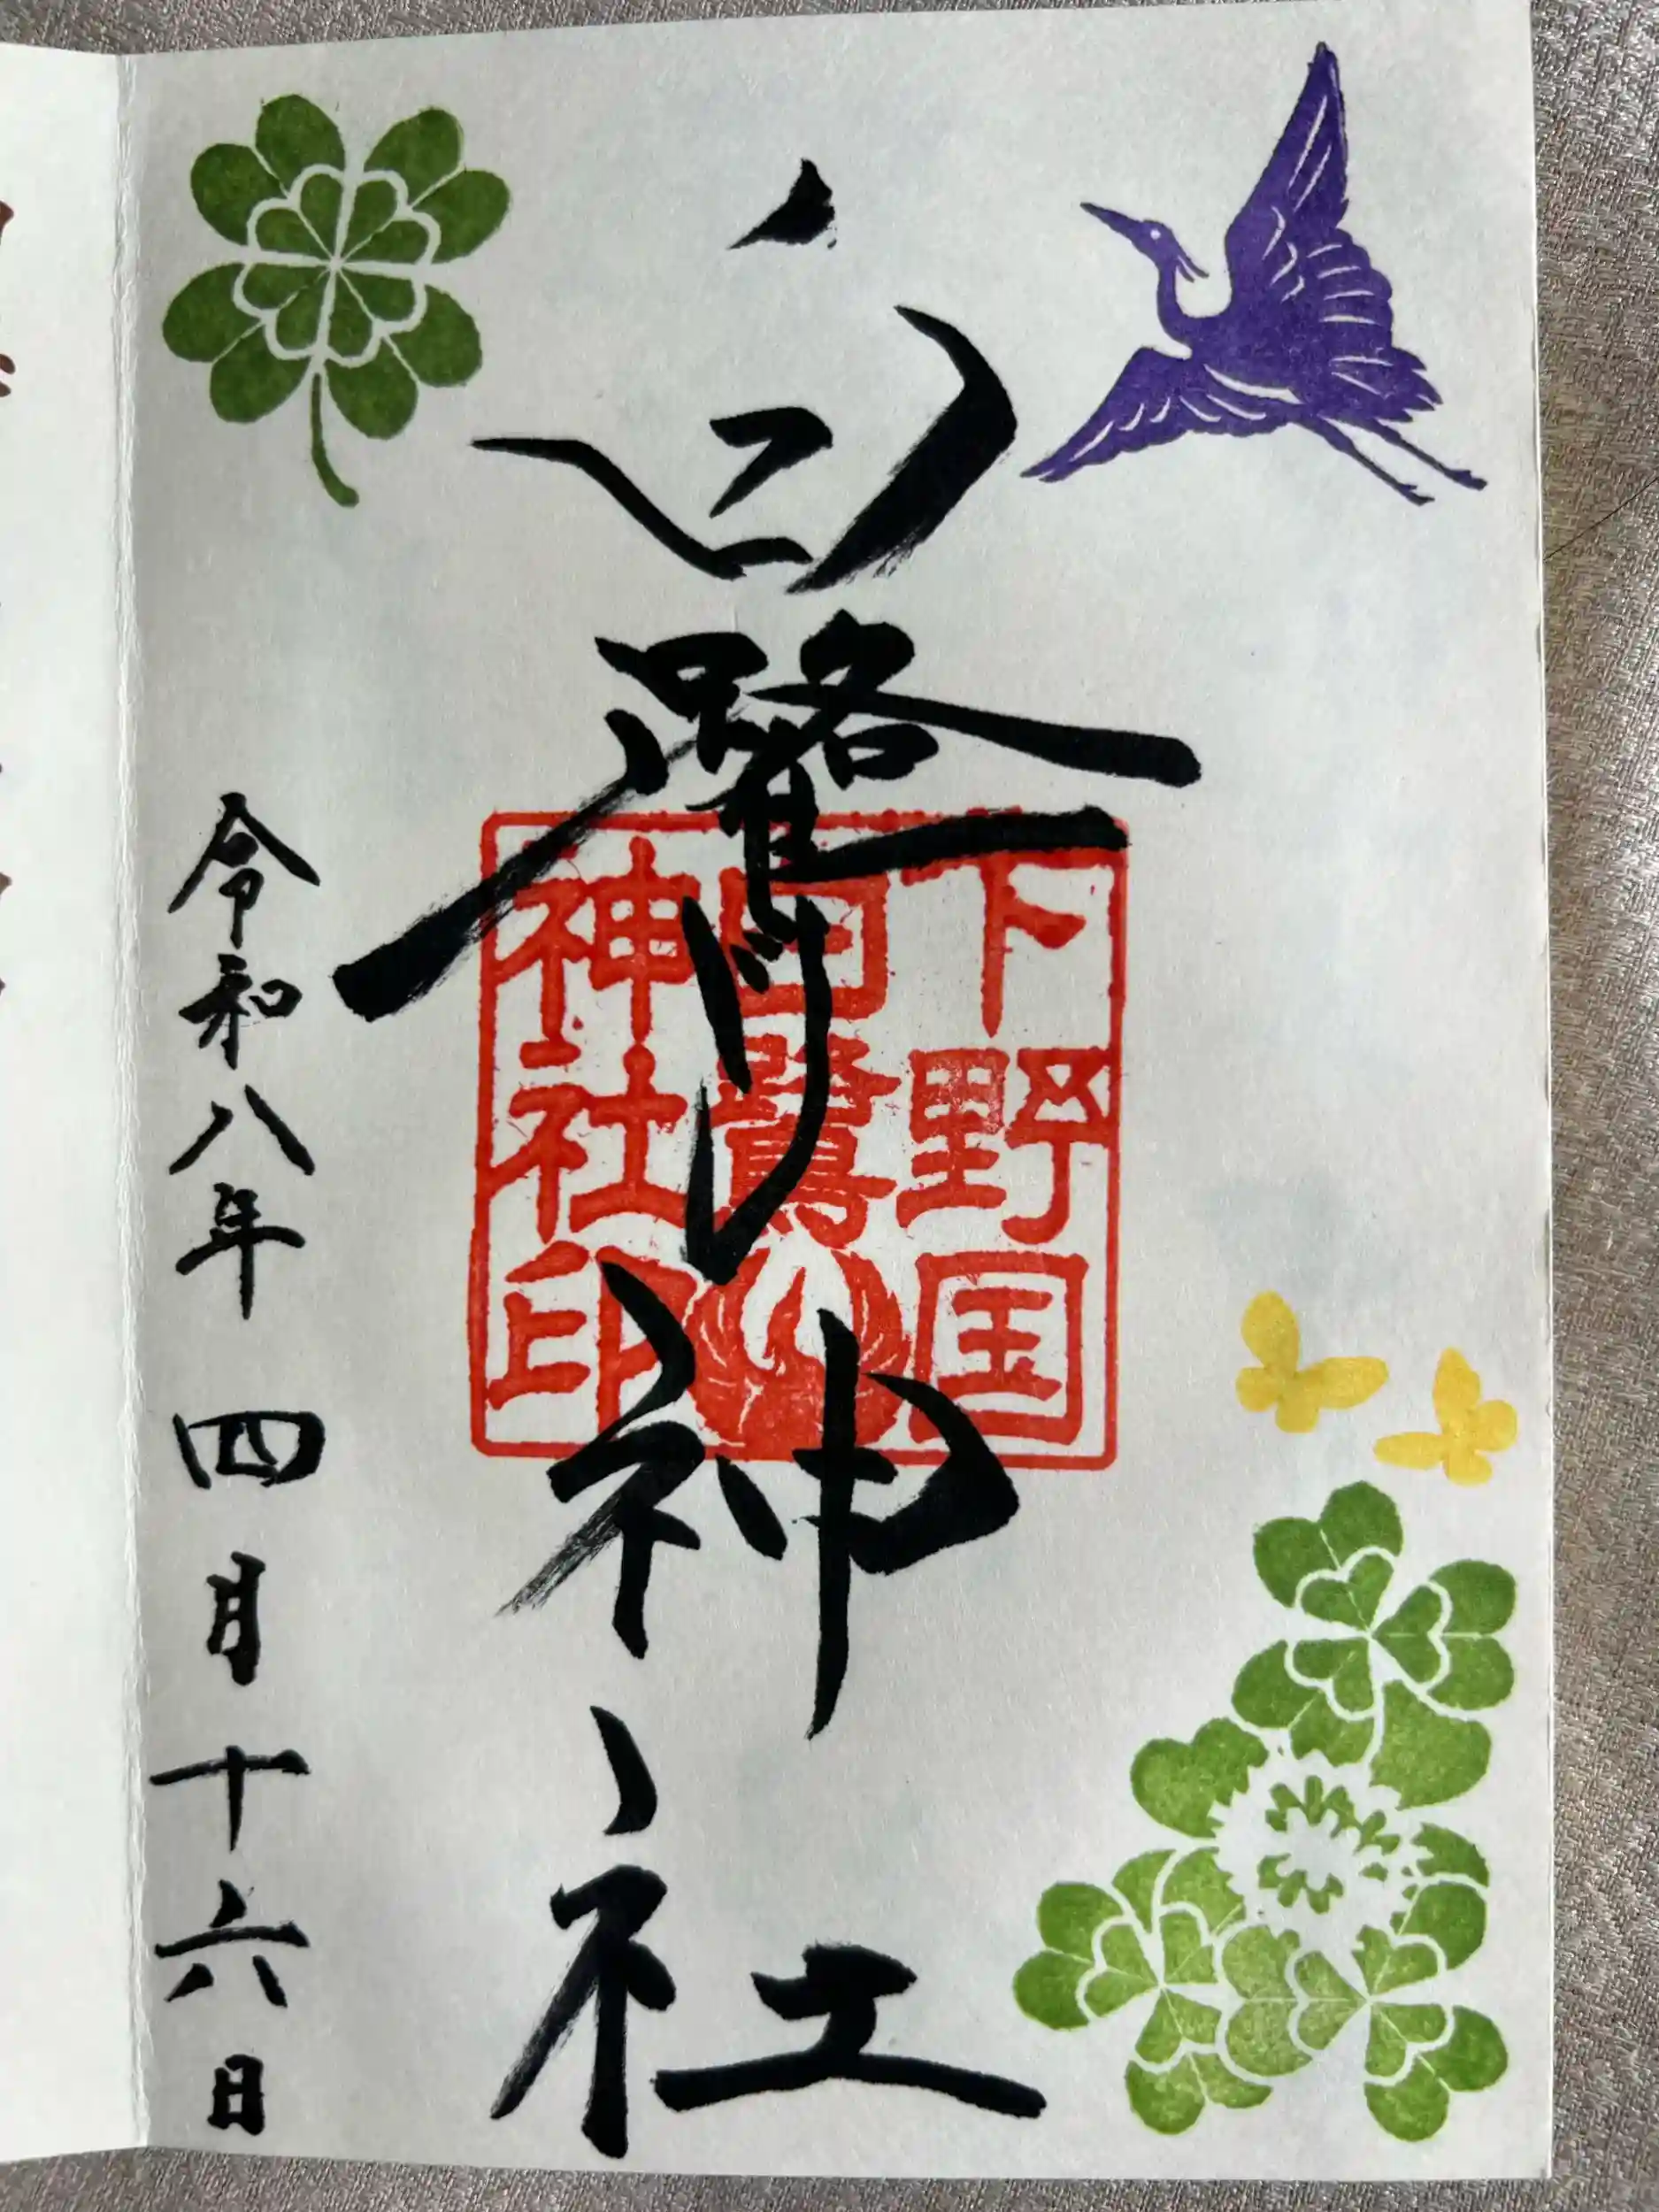 白鷺神社
下野国
白鷺
神社印
令和八年四月十六日